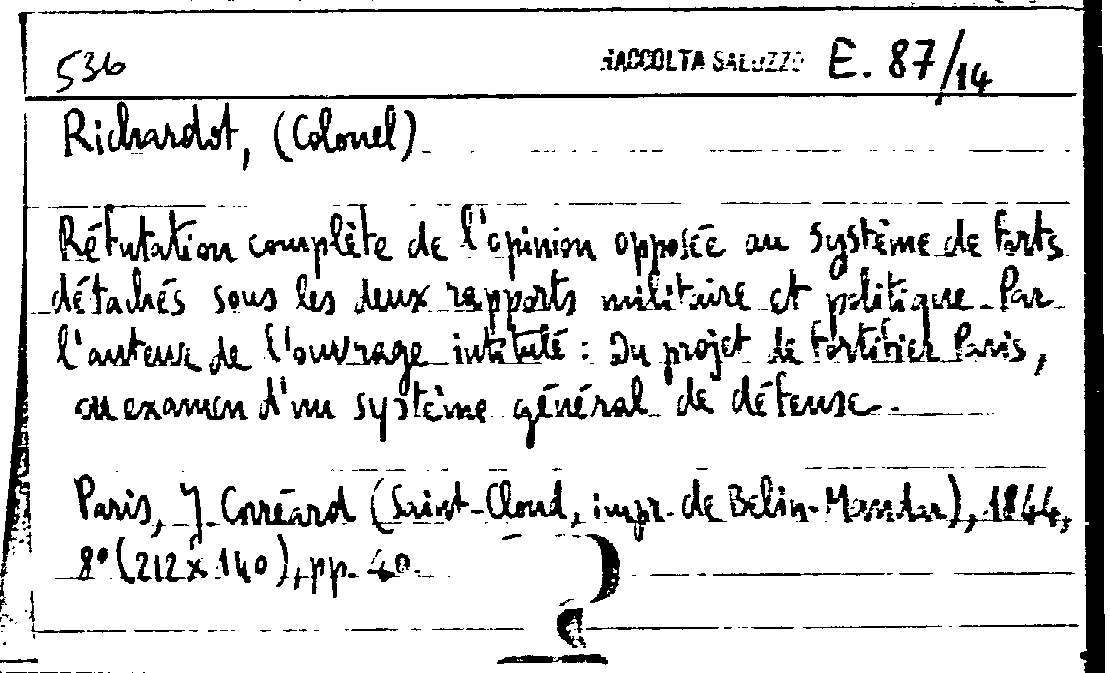 536 RACCOLTA SALUZZO E. 87/14
Richardot, (Colonel)
Réfutation complète de l'opinion opposée au système de forts
détachés sous les deux rapports militaire et politique. Par
l'auteur de l'ouvrage intitulé : Du projet de fortifier Paris,
ou examen d'un système général de défense.
Paris, J. Corréard (Saint-Cloud, impr. de Belin-Mandar), 1844,
8° (212 x 140), pp. 40.